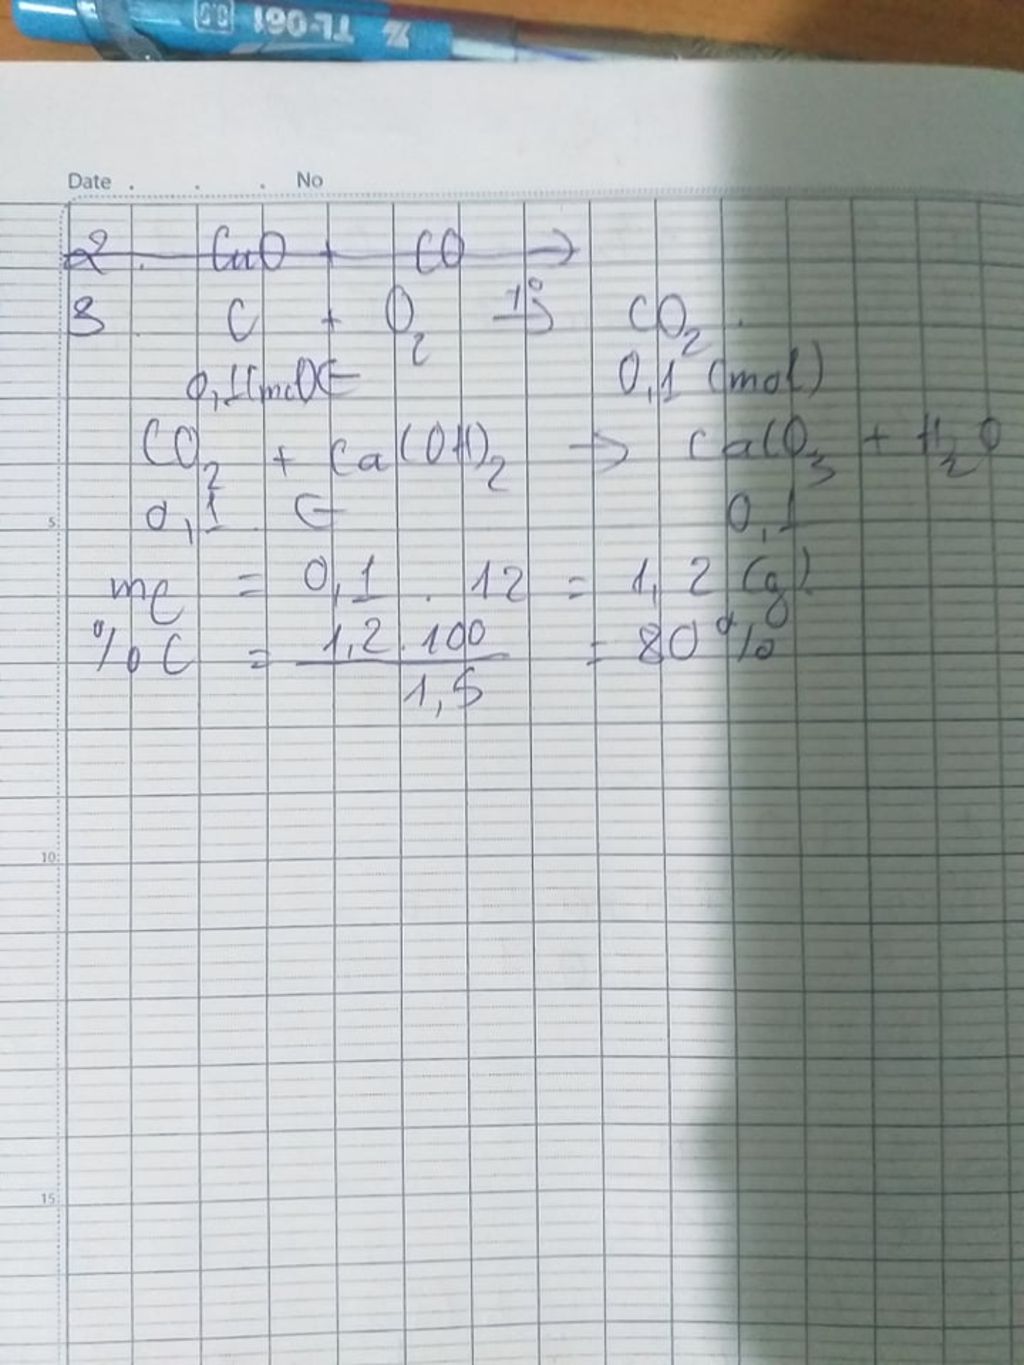 TL-061 0.5
Date . . . No
2. CuO + CO →
3. C + O2 t°→ CO2
0,1 (mol) ← 0,1 (mol)
CO2 + Ca(OH)2 → CaCO3 + H2O
5
0,1 ← 0,1
mC = 0,1 . 12 = 1,2 (g)
%C = 1,2.100 / 1,5 = 80%
10
15